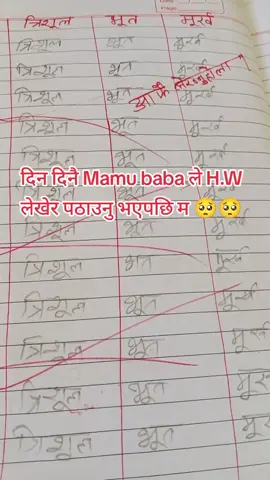 त्रिशूल भूत मूर्ख
त्रिशूल भूत मूर्ख
त्रिशूल भूत मूर्ख
त्रिशूल भूत मूर्ख
त्रिशूल भूत मूर्ख
त्रिशूल भूत मूर्ख
दिन दिनै Mamu baba ले H.W
लेखेर पठाउनु भएपछि म 🥺🥺
त्रिशूल भूत मूर्ख
त्रिशूल भूत मूर्ख
त्रिशूल भूत मूर्ख
त्रिशूल भूत मूर्ख
त्रिशूल भूत मूर्ख